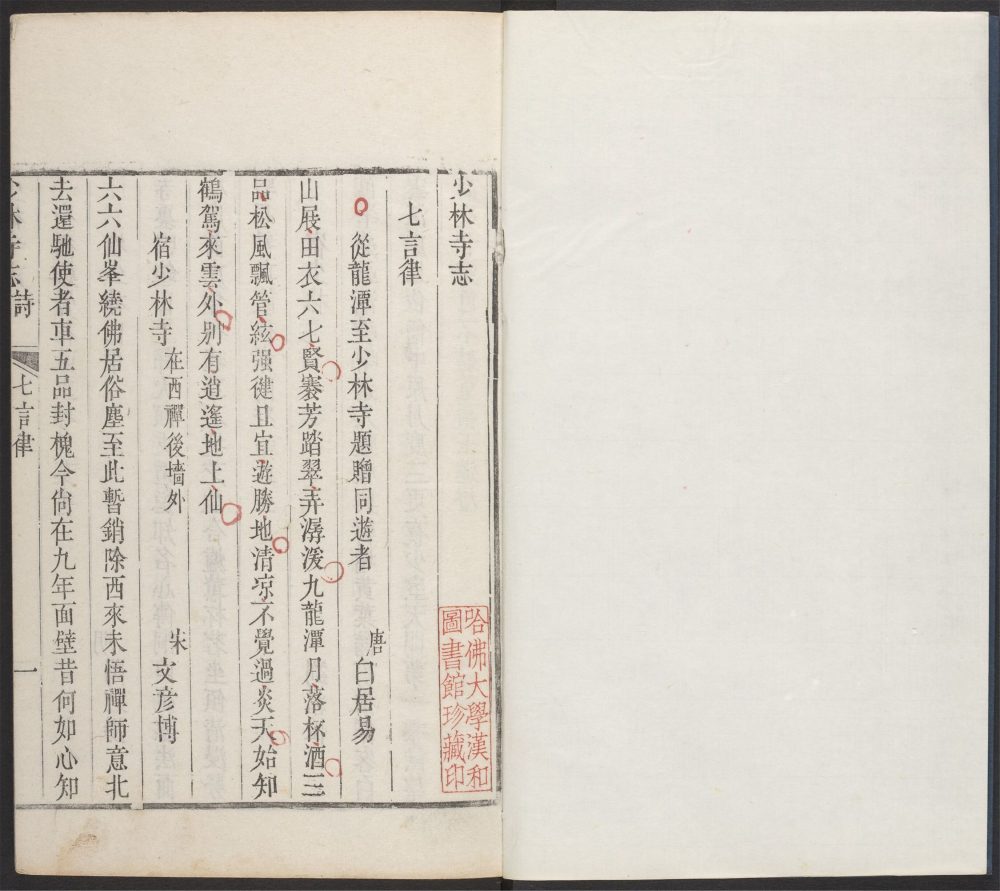 少林寺志
七言律
從龍潭至少林寺題贈同遊者 唐 白居易
山展田衣六七賢搴芳踏翠弄潺湲九龍潭月落杯酒三
品松風飄管絃强徤且宜遊勝地清凉不覺過炎天始知
鶴駕來雲外别有逍遙地上仙
宿少林寺 在西禪後墻外 宋 文彦博
六六仙峯繞佛居俗塵至此暫銷除西來未悟禪師意北
去還馳使者車五品封槐今尙在九年面壁昔何如心知
少林寺志 詩 七言律 一
哈佛大學漢和
圖書館珍藏印